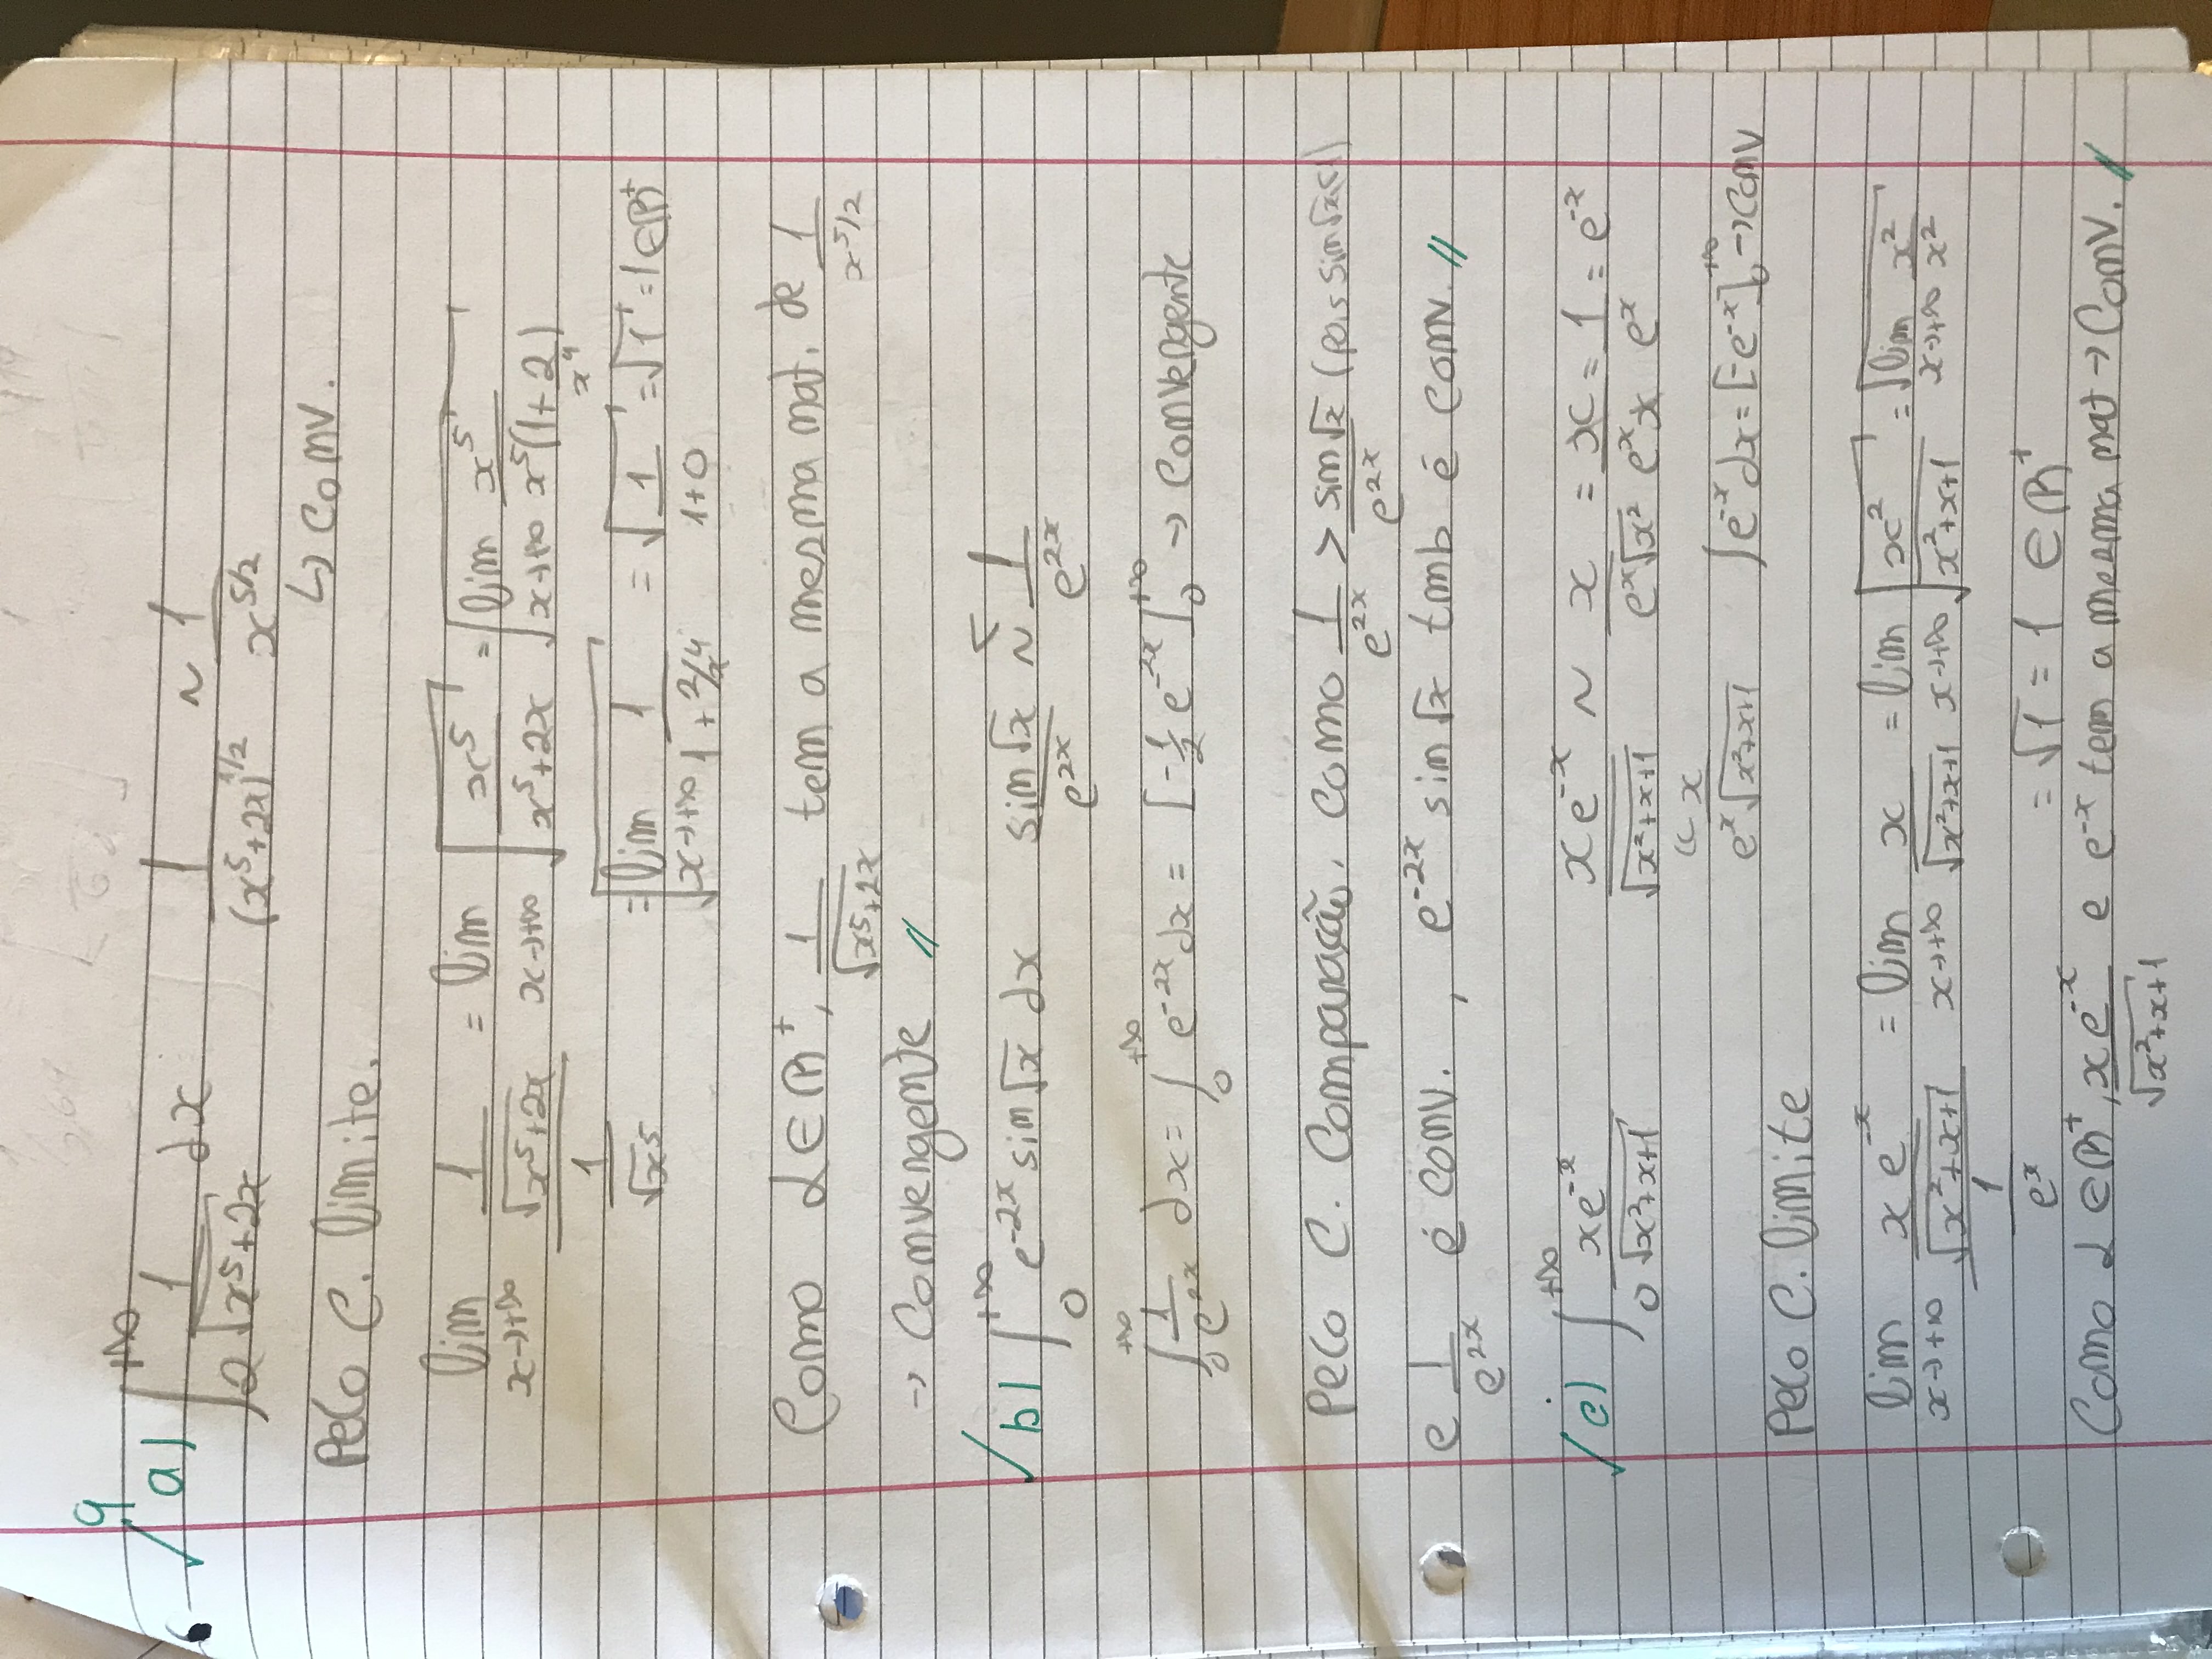 9
✓ a) ∫₂^{+∞} 1/√(x⁵+2x) dx    1/(x⁵+2x)^{1/2} ~ 1/x^{5/2}
↳ Conv.
Pelo C. limite.
lim_{x→+∞} (1/√(x⁵+2x))/(1/√x⁵) = lim_{x→+∞} √(x⁵/(x⁵+2x)) = √(lim_{x→+∞} x⁵/(x⁵(1+2/x⁴)))
= √(lim_{x→+∞} 1/(1+2/x⁴)) = √(1/(1+0)) = √1 = 1 ∈ ℝ⁺
Como L ∈ ℝ⁺, 1/√(x⁵+2x) tem a mesma nat. de 1/x^{5/2}
→ Convergente //
✓ b) ∫₀^{+∞} e^{-2x} sin√x dx    sin√x/e^{2x} ~ < 1/e^{2x}
∫₀^{+∞} 1/e^{2x} dx = ∫₀^{+∞} e^{-2x} dx = [-1/2 e^{-2x}]₀^{+∞} → Convergente
Pelo C. Comparação. Como 1/e^{2x} > sin√x/e^{2x} (pois sin√x<1)
e 1/e^{2x} é conv., e^{-2x} sin√x tmb é conv. //
✓ c) ∫₀^{+∞} xe^{-x}/√(x²+x+1)    xe^{-x}/√(x²+x+1) ~ x/(e^x√x²) = x/(e^x x) = 1/e^x = e^{-x}
x/(e^x√(x²+x+1))    ∫e^{-x}dx = [-e^{-x}]₀^{+∞} → Conv
Pelo C. limite
lim_{x→+∞} (x e^{-x}/√(x²+x+1))/(1/e^x) = lim_{x→+∞} x/√(x²+x+1) = lim_{x→+∞} √(x²/(x²+x+1)) = √(lim_{x→+∞} x²/x²)
= √1 = 1 ∈ ℝ⁺
Como L ∈ ℝ⁺, xe^{-x}/√(x²+x+1) e e^{-x} tem a mesma nat → Conv. //